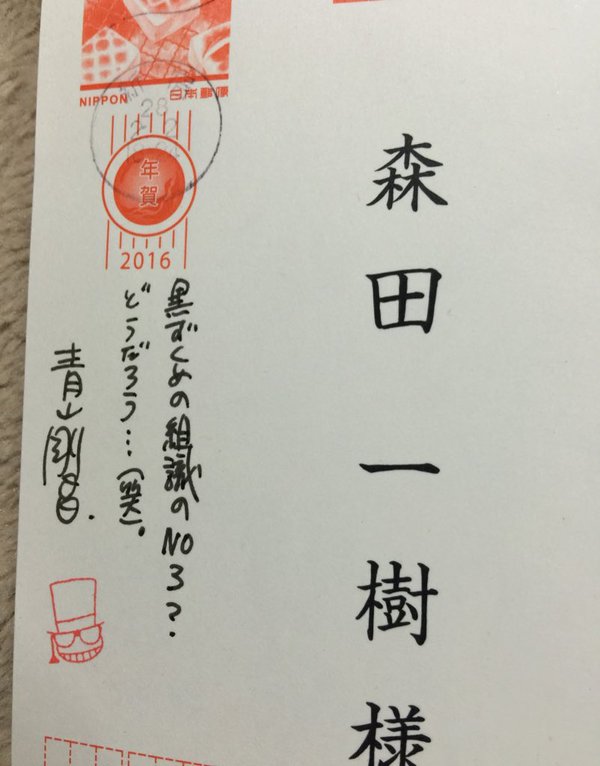 NIPPON 日本郵便
年賀
2016
森田一樹様
黒ずくめの組織のNO3?.
どうだろう…(笑)。
青山剛昌.